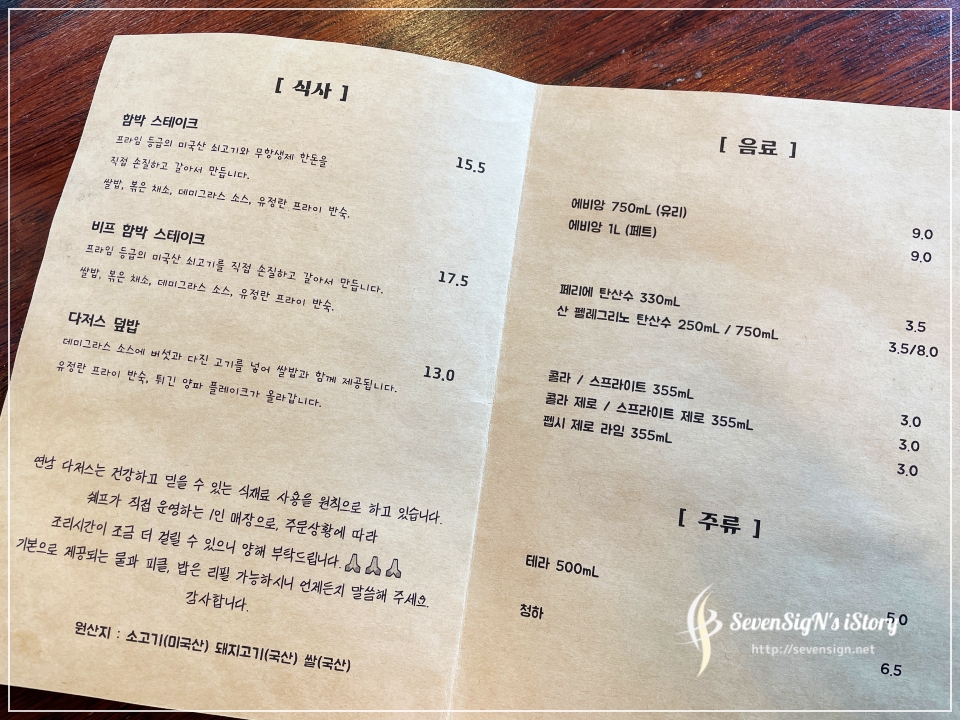 [ 식사 ]
함박 스테이크
프라임 등급의 미국산 쇠고기와 무항생제 한돈을
직접 손질하고 갈아서 만듭니다.
15.5
쌀밥, 볶은 채소, 데미그라스 소스, 유정란 프라이 반숙.
비프 함박 스테이크
프라임 등급의 미국산 쇠고기를 직접 손질하고 갈아서 만듭니다.
17.5
쌀밥, 볶은 채소, 데미그라스 소스, 유정란 프라이 반숙.
다저스 덮밥
데미그라스 소스에 버섯과 다진 고기를 넣어 쌀밥과 함께 제공됩니다.
13.0
유정란 프라이 반숙, 튀긴 양파 플레이크가 올라갑니다.
연남 다저스는 건강하고 믿을 수 있는 식재료 사용을 원칙으로 하고 있습니다.
쉐프가 직접 운영하는 1인 매장으로, 주문상황에 따라
조리시간이 조금 더 걸릴 수 있으니 양해 부탁드립니다.🙏🙏🙏
기본으로 제공되는 물과 피클, 밥은 리필 가능하시니 언제든지 말씀해 주세요.
감사합니다.
원산지 : 소고기(미국산) 돼지고기(국산) 쌀(국산)
[ 음료 ]
에비앙 750mL (유리) 9.0
에비앙 1L (페트) 9.0
페리에 탄산수 330mL 3.5
산 펠레그리노 탄산수 250mL / 750mL 3.5/8.0
콜라 / 스프라이트 355mL 3.0
콜라 제로 / 스프라이트 제로 355mL 3.0
펩시 제로 라임 355mL 3.0
[ 주류 ]
테라 500mL 5.0
청하 6.5
SevenSigN's iStory
http://sevensign.net